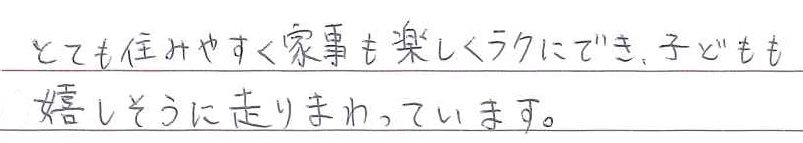 とても住みやすく家事も楽しくラクにでき、子どもも
嬉しそうに走りまわっています。